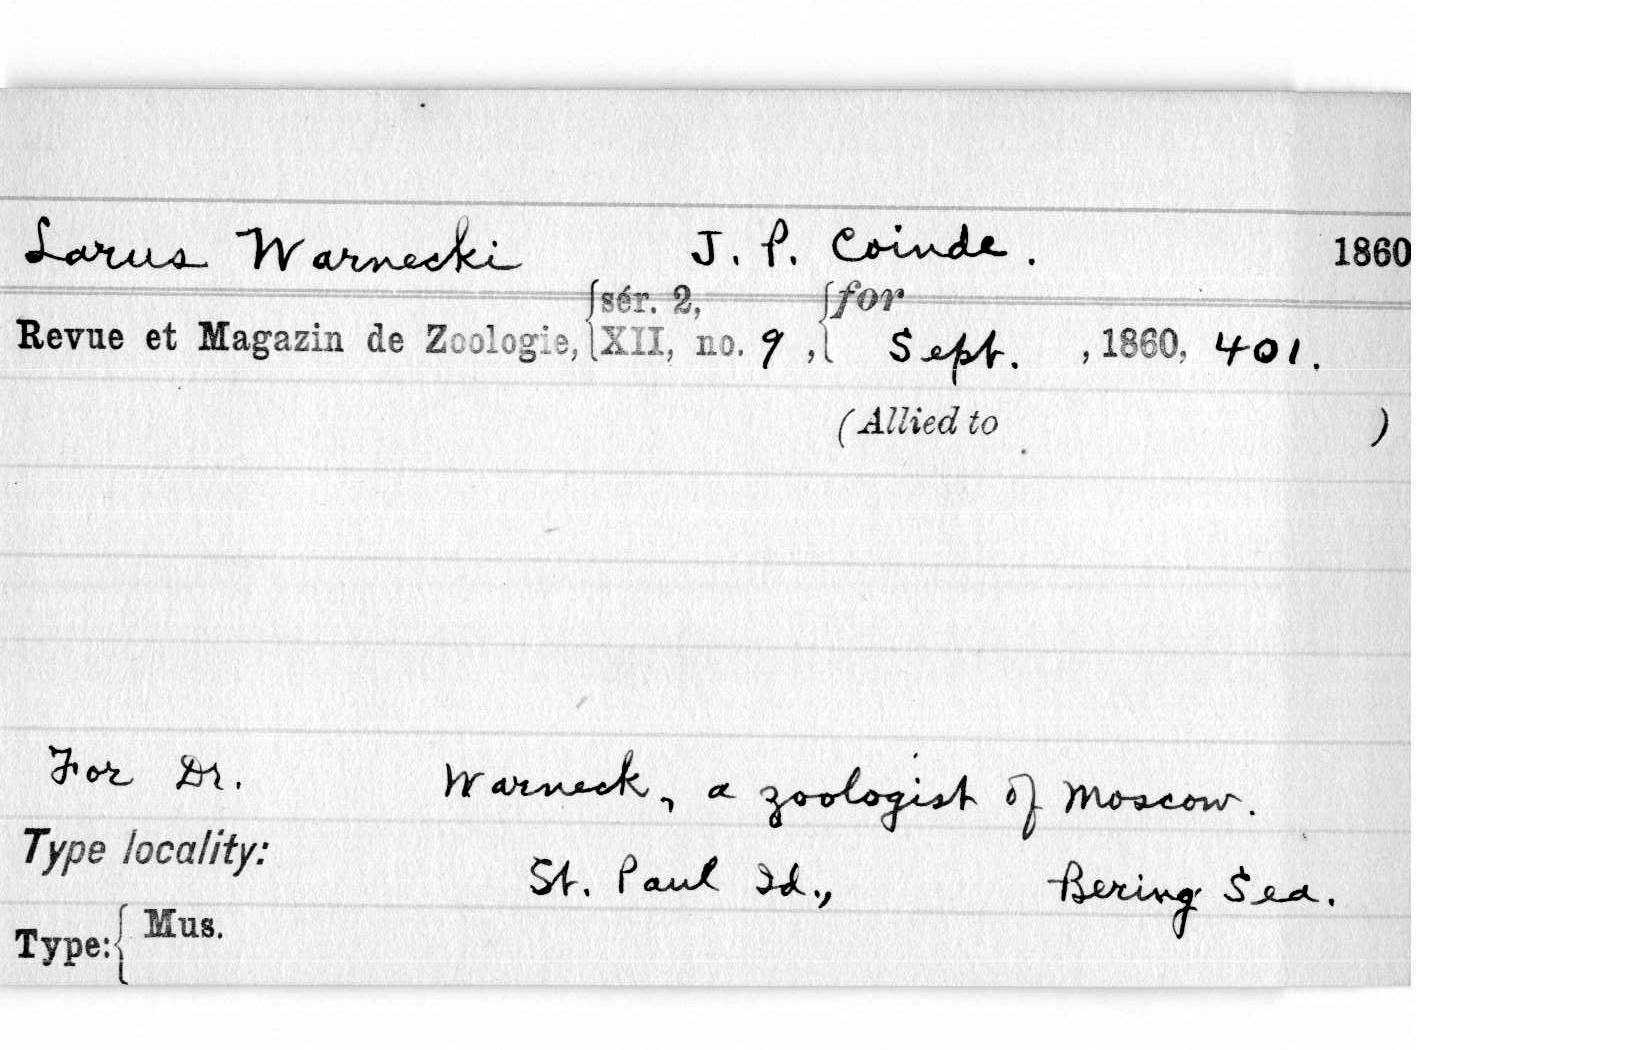 Larus Warnecki J. P. Coinde. 1860
Revue et Magazin de Zoologie, {sér. 2, XII, no. 9, {for Sept., 1860, 401.
(Allied to )
For Dr. Warneck, a zoologist of Moscow.
Type locality: St. Paul Id., Bering Sea.
Type: { Mus.